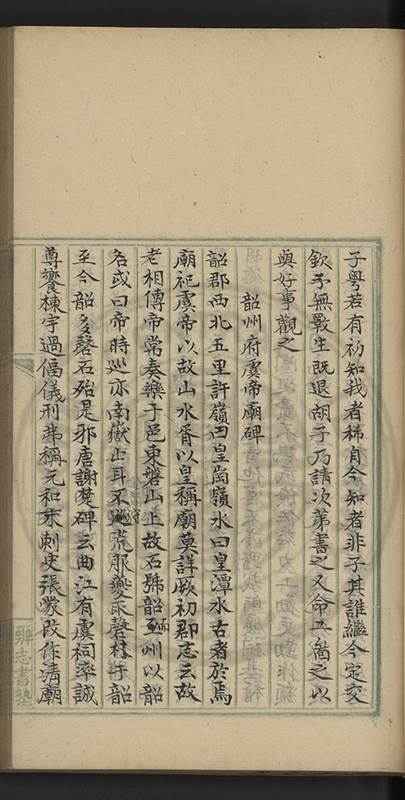 子粤若有初知我者稀自今知者非子其誰繼今定交
欽予無斁生既退胡子乃請次第書之又命工畫之以
與好事觀之
韶州府虞帝廟碑
韶郡西北五里許嶺曰皇崗嶺水曰皇潭水古者於焉
廟祀虞帝以故山水胥以皇稱廟莫詳厥初郡志云故
老相傳帝常奏樂于邑東磐山上故石號韶石州以韶
名或曰帝時巡亦南嶽止耳不荒服夔亦磬于韶
至今韶多磬石殆是邪唐謝楚碑云曲江有虞祠率誠
尊饗棟宇過偪儀刑弗稱元和末刺史張蒙改作清廟
雜志書塾